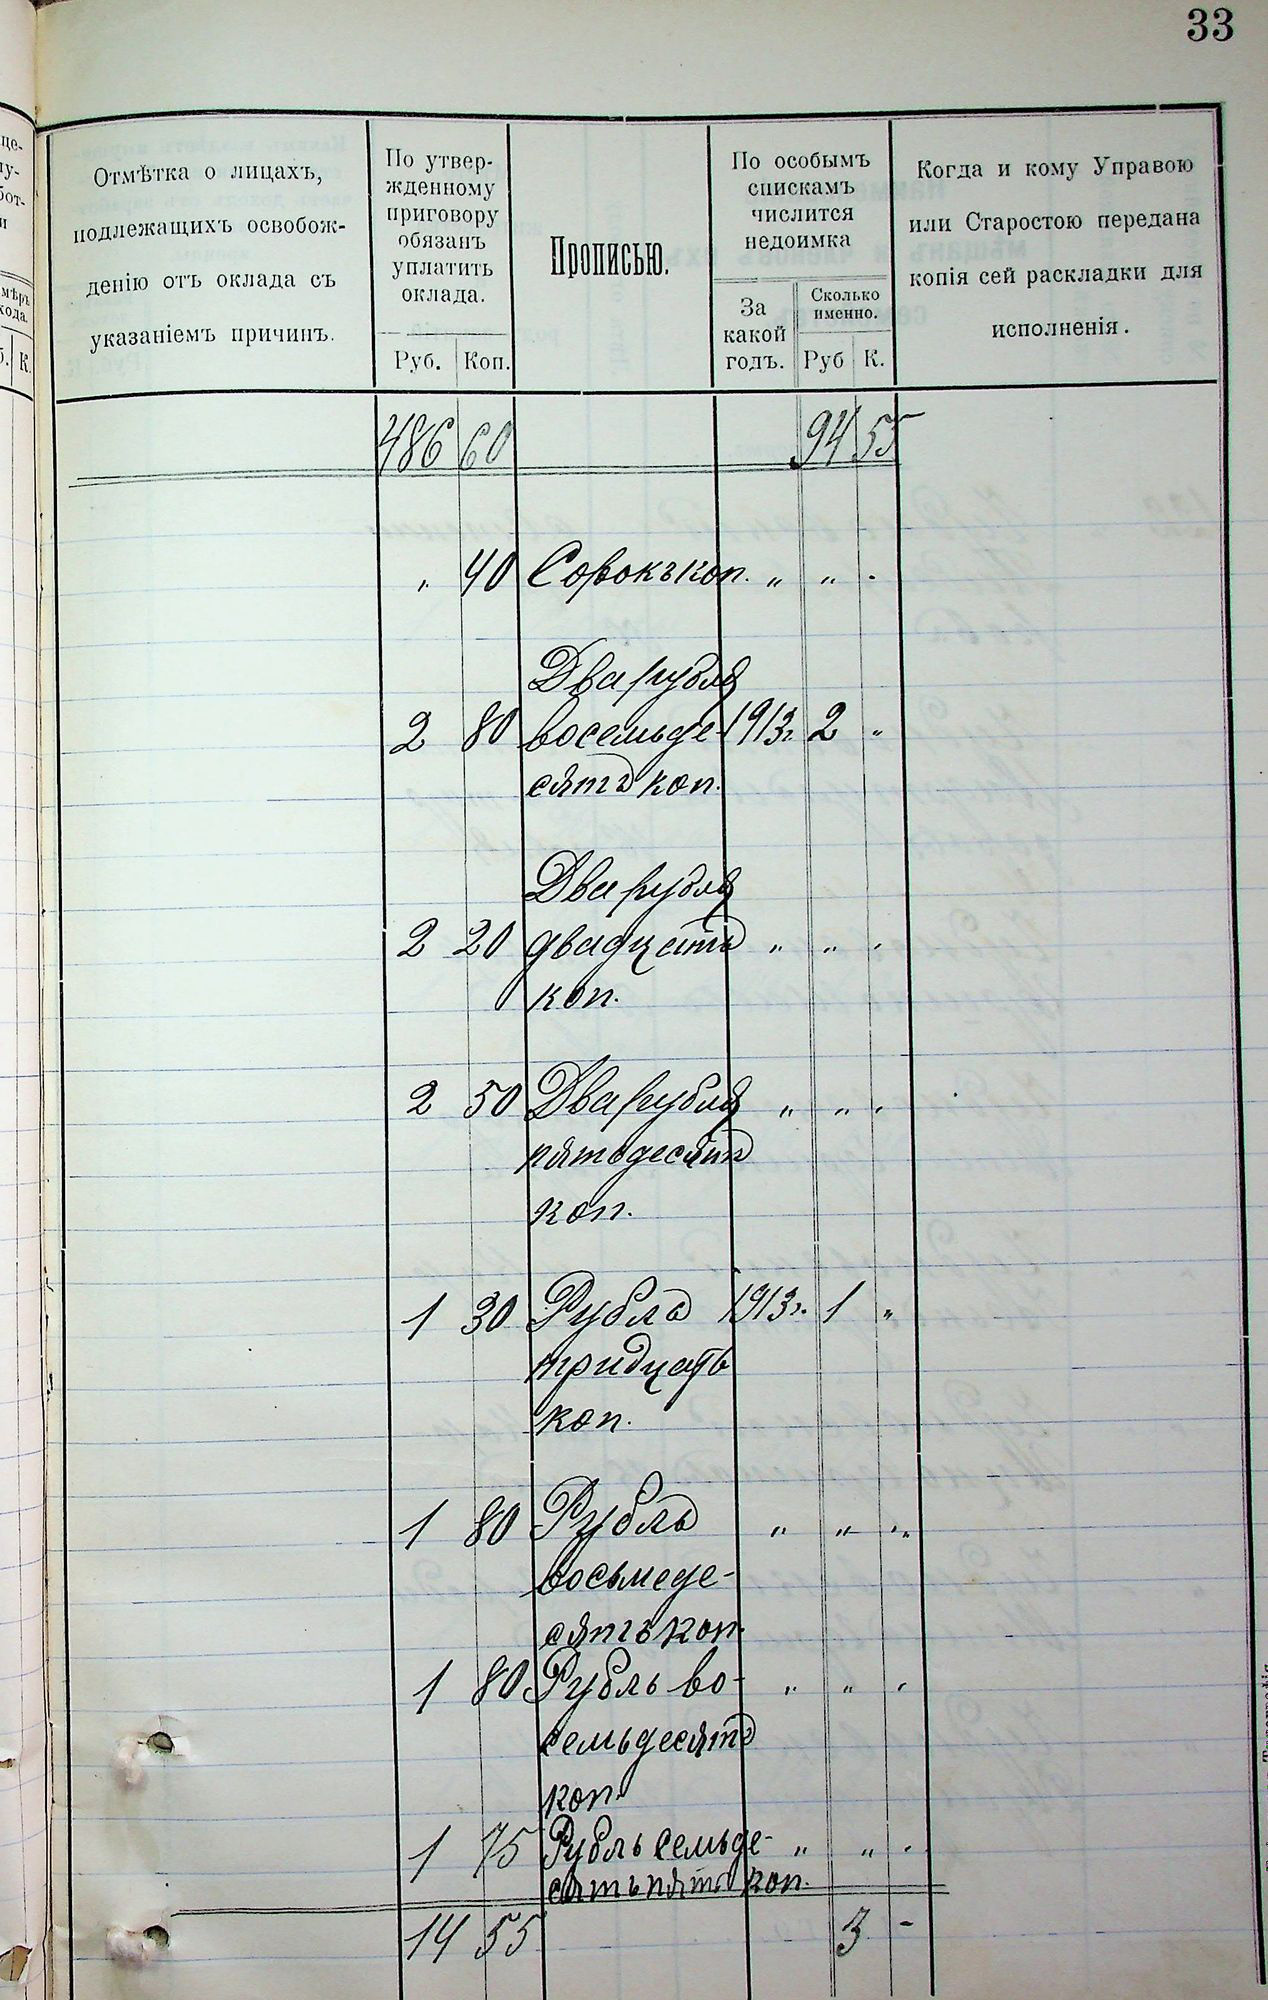 33
Отмѣтка о лицахъ,
подлежащихъ освобож-
денію отъ оклада съ
указаніемъ причинъ.
По утвер-
жденному
приговору
обязанъ
уплатить
оклада.
Руб. Коп.
Прописью.
По особымъ
спискамъ
числится
недоимка
За
какой
годъ.
Сколько
именно.
Руб К.
Когда и кому Управою
или Старостою передана
копія сей раскладки для
исполненія.
486 60 94 55
„ 40 Сорокъ коп. „ „ „
Два рубля
2 80 восемьде- 1913г. 2 „
сятъ коп.
Два рубля
2 20 двадцать „ „ „
коп.
2 50 Два рубля „ „ „
пятьдесятъ
коп.
1 30 Рубль 1913г. 1 „
тридцать
коп.
1 80 Рубль „ „ „
восьмеде-
сятъ коп.
1 80 Рубль во- „ „ „
семьдесятъ
коп.
1 75 Рубль семьде- „ „ „
сятъ пять коп.
14 55 3 -